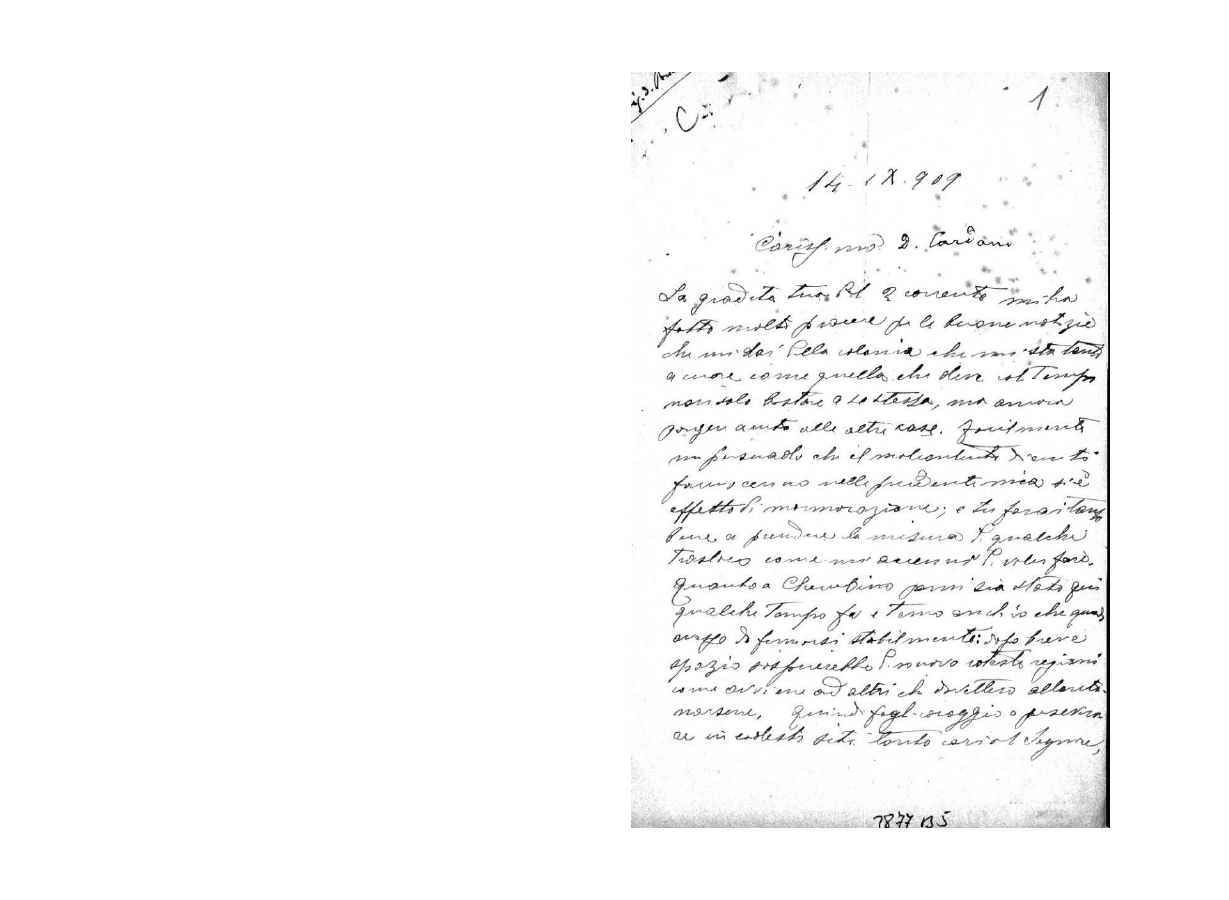 1
14. IX. 909
Cariss.mo D. Cardano
La gradita tua del 2 corrente mi ha
fatto molto piacere per le buone notizie
che mi dai della colonia che mi sta tanto
a cuore come quella che deve col tempo
non solo bastare a se stessa, ma ancora
porger aiuto alle altre case. Facilmente
mi persuado che il malcontento di cui ti
nella si è
effetto di mormorazione; e tu farai
bene a prendere la misura di qualche
trasloco come mi accenni di voler fare.
Quanto a Cherubino parmi sia stato qui
qualche tempo fa e temo anch'io che
da fermarsi stabilmente: dopo breve
spazio sospirerebbe di nuovo coteste regioni
come avviene ad altri che dovettero allonta-
narsene. Quindi fagli coraggio a persevera
re in codesti siti tanto cari al Signore,
2877 B5